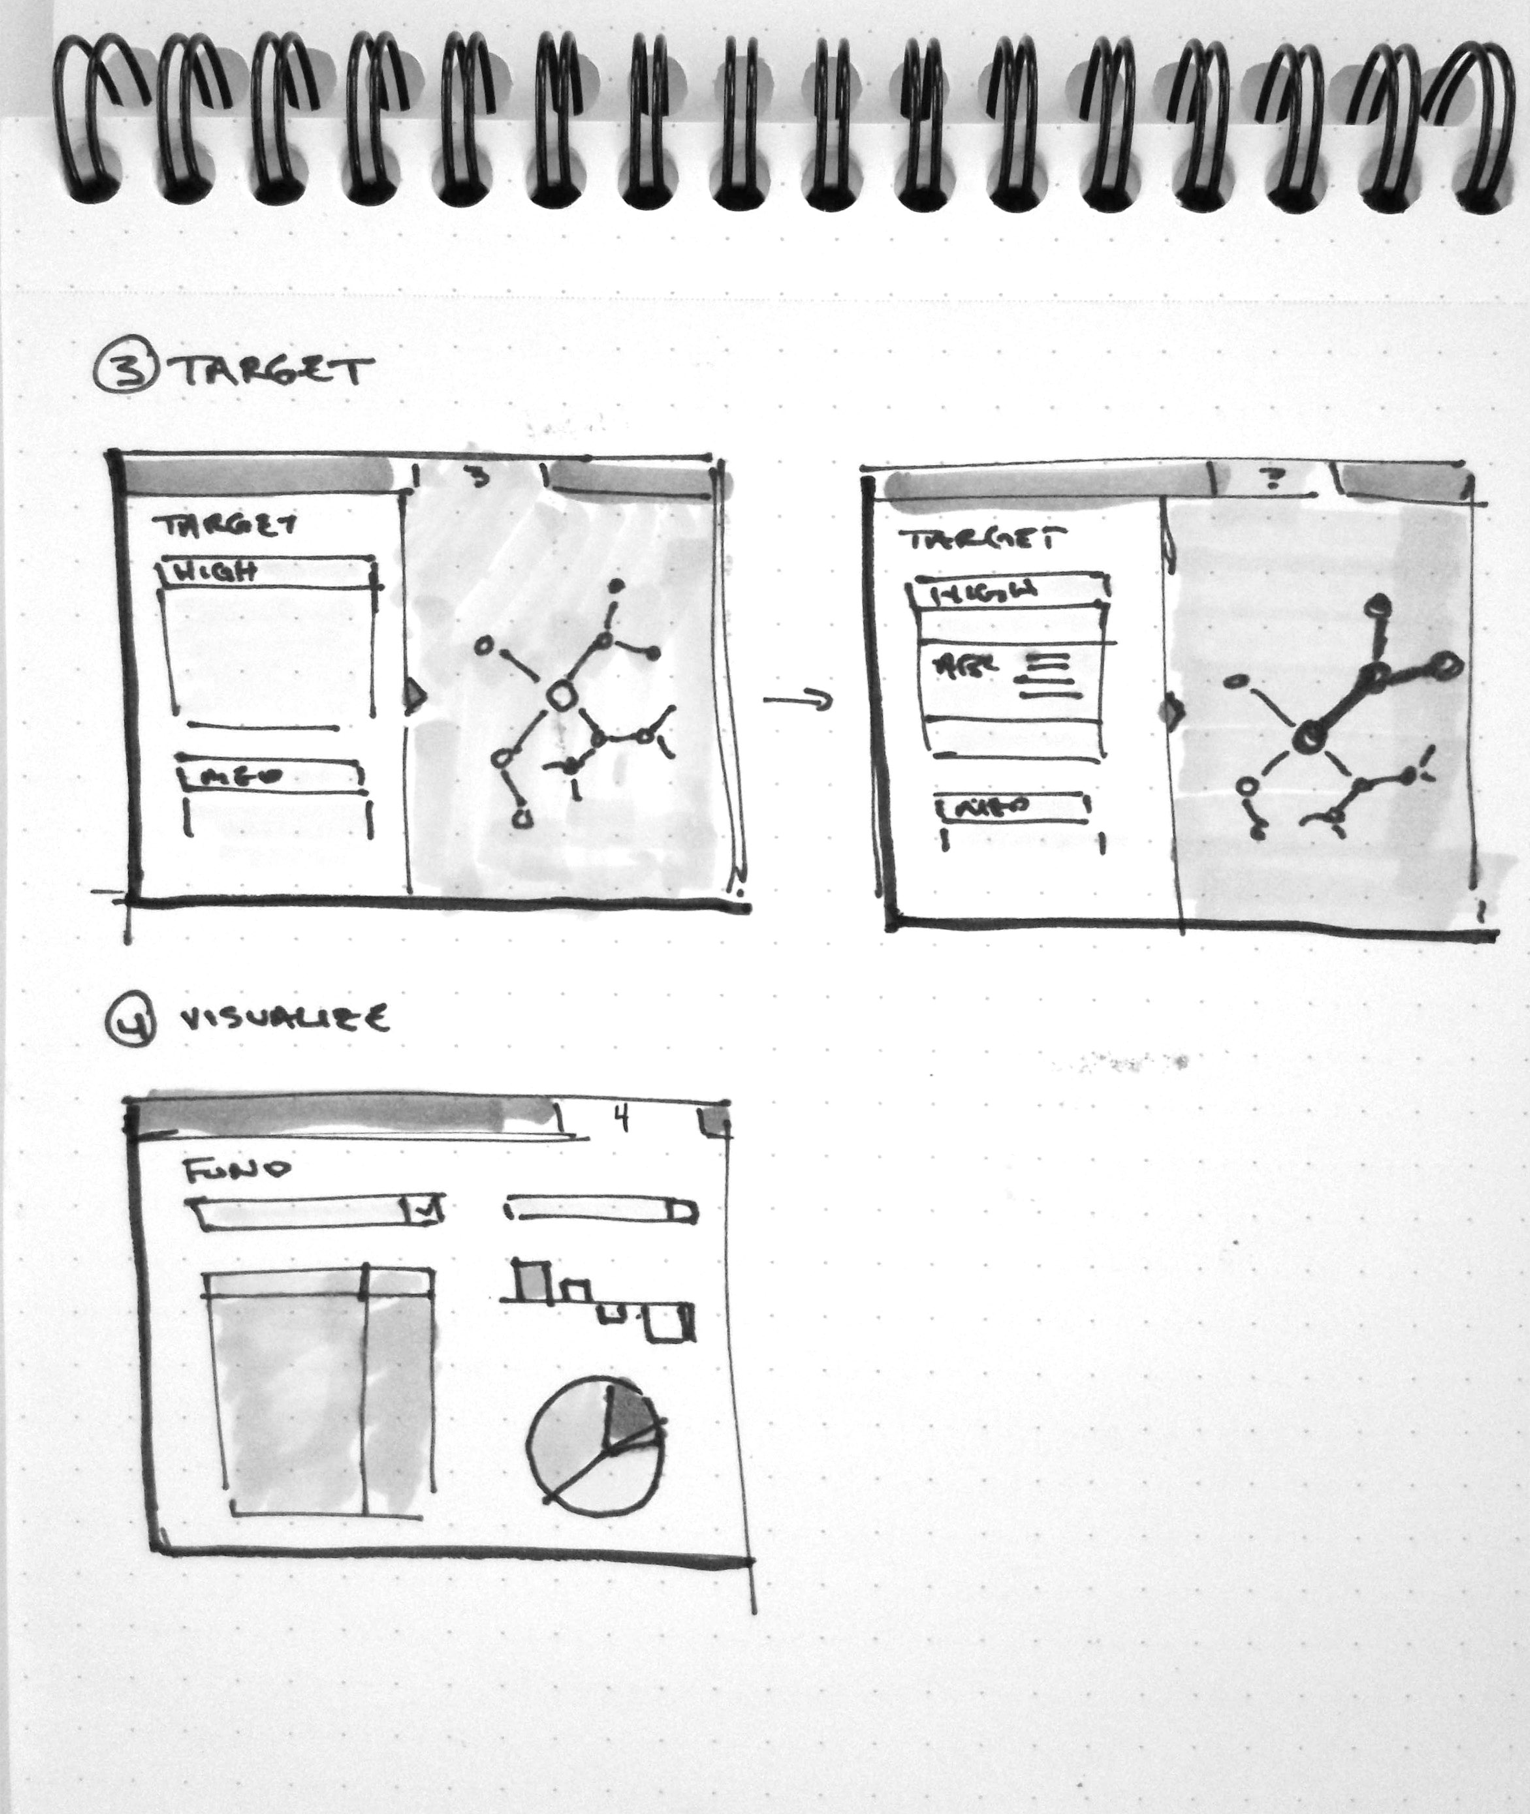 3 TARGET
3
TARGET
HIGH
MED
?
TARGET
HIGH
MED
4 VISUALIZE
4
FUND